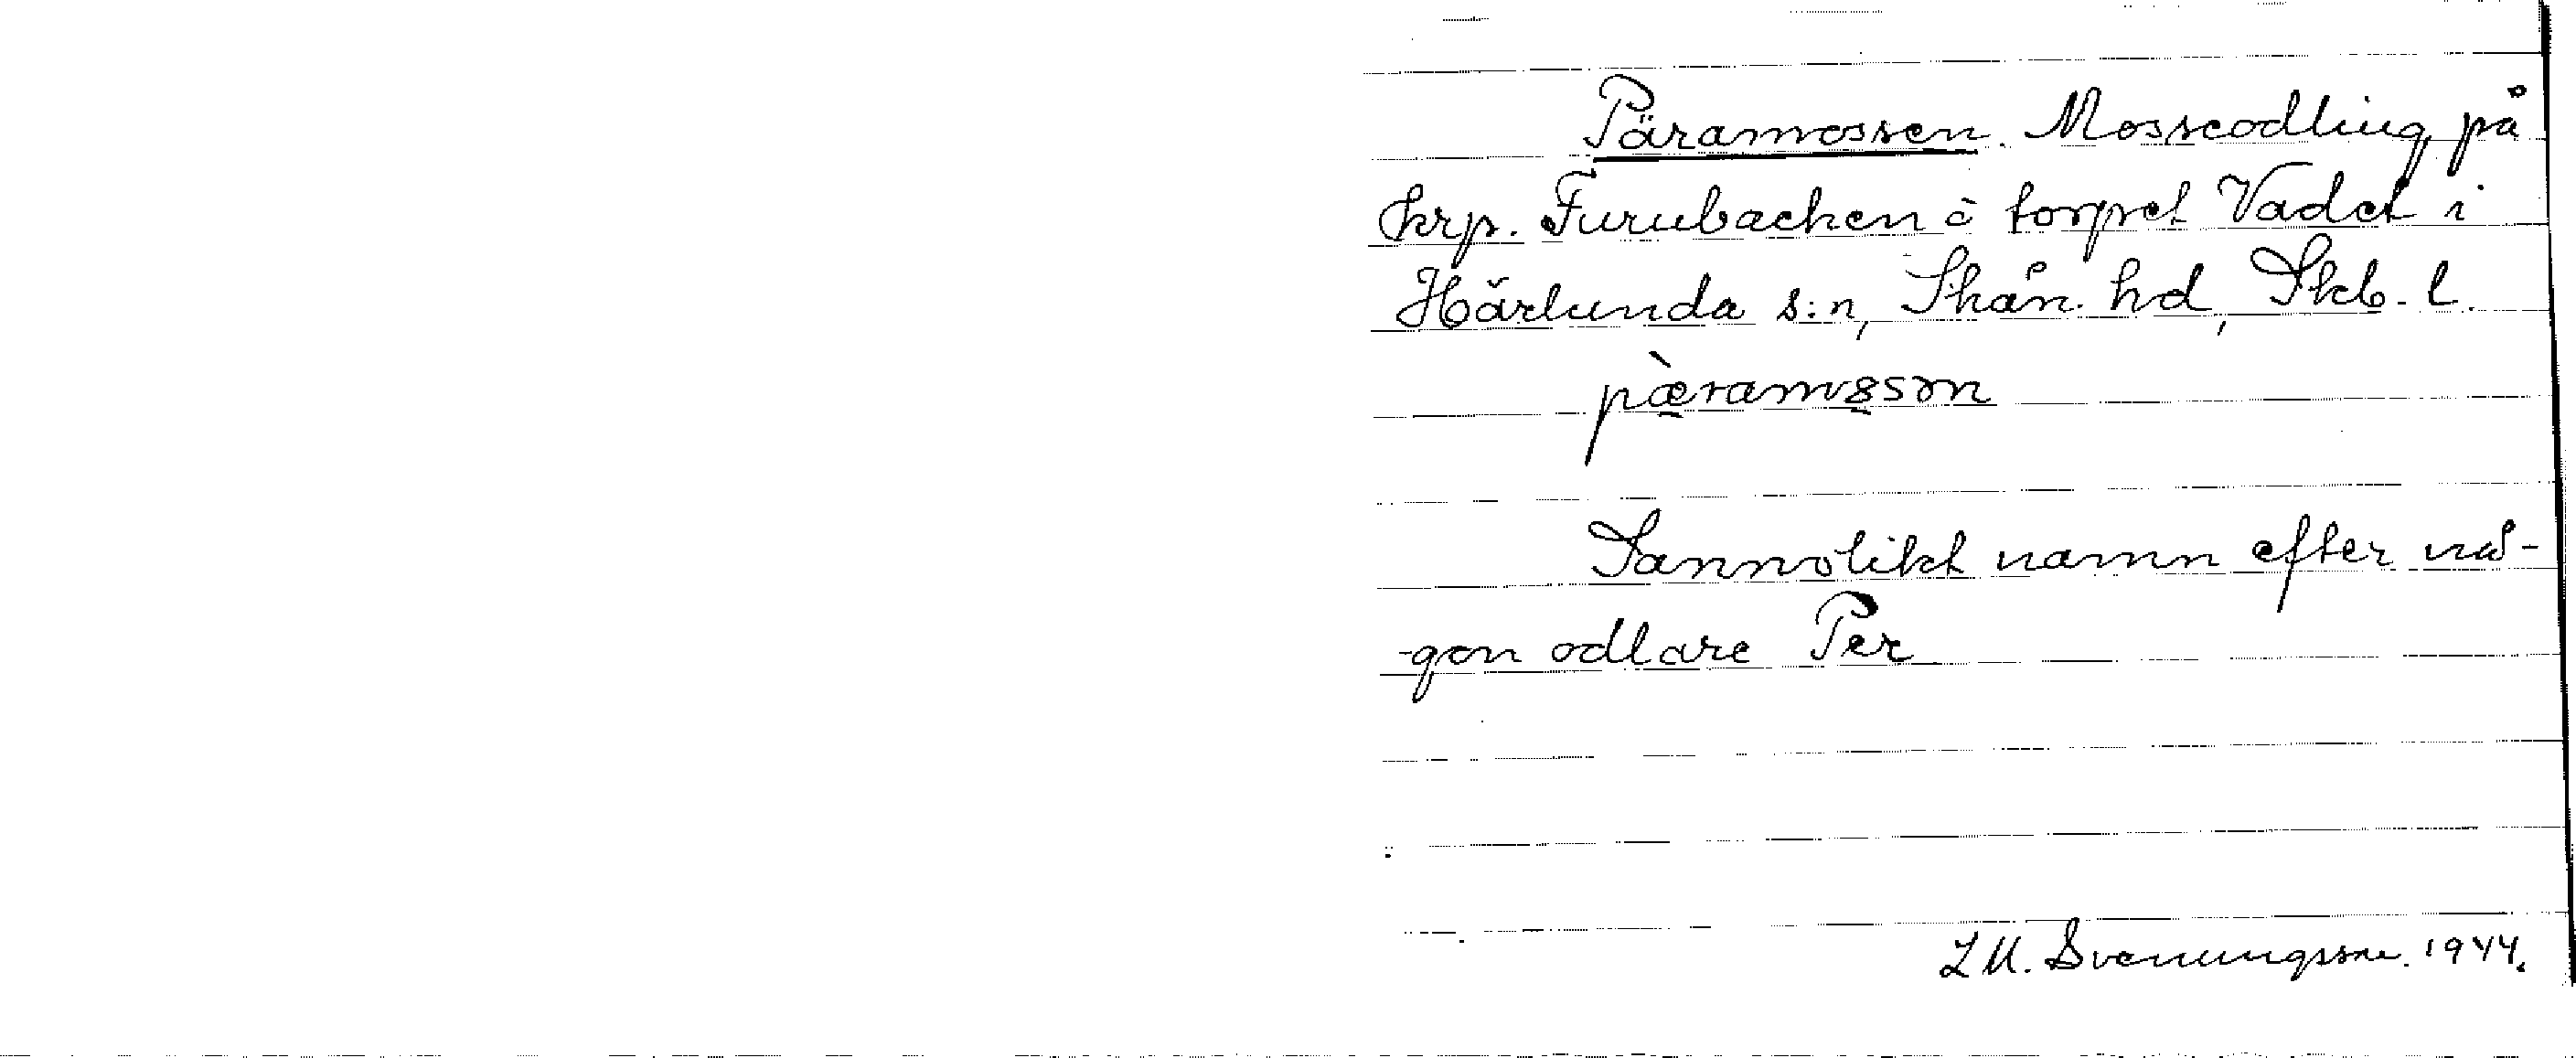 Päramossen. Mosseodling på
krp. Furubacken å torpet Vadet i
Härlunda s:n, Skån. hd, Skb. l.
pæ̀ramɞsən
Sannolikt namn efter nå-
-gon odlare Per
L M. Svenungsson. 1944.